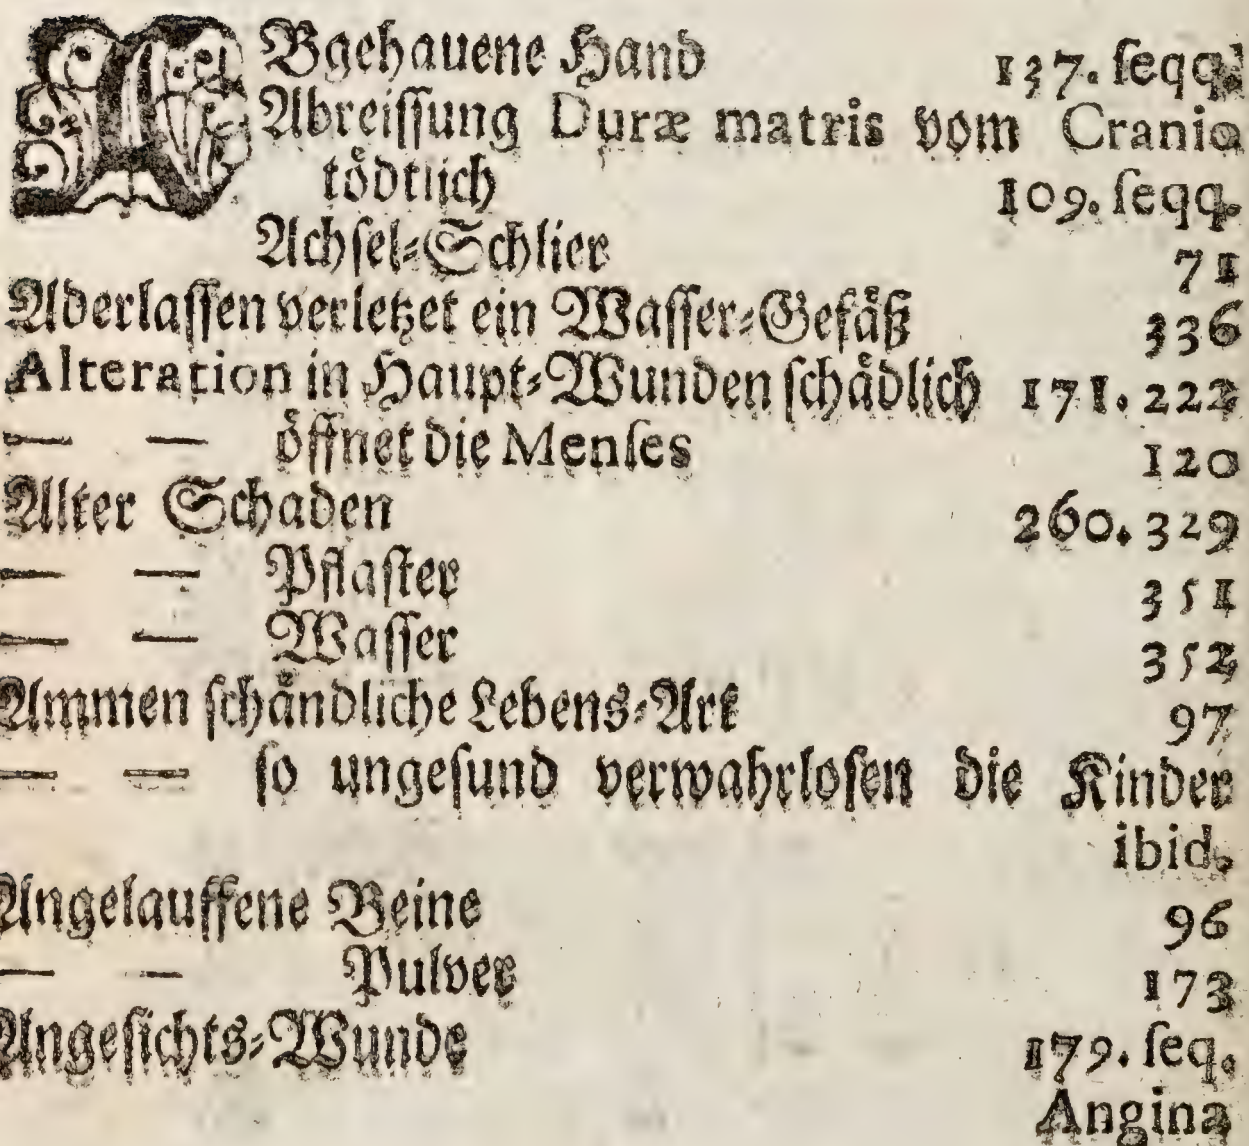 ABgehauene Hand 137. ſeqq.
Abreiſſung Duræ matris vom Cranio
toͤdtlich 109. ſeqq.
Achſel-Schlier 71
Aderlaſſen verletzet ein Waſſer-Gefaͤß 336
Alteration in Haupt-Wunden ſchaͤdlich 171. 222
— — oͤffnet die Menſes 120
Alter Schaden 260. 329
— — Pflaſter 351
— — Waſſer 352
Ammen ſchaͤndliche Lebens-Art 97
— — ſo ungeſund verwahrloſen die Kinder
ibid.
Angelauffene Beine 96
— — Pulver 173
Angeſichts-Wunde 179. ſeq.
Angina